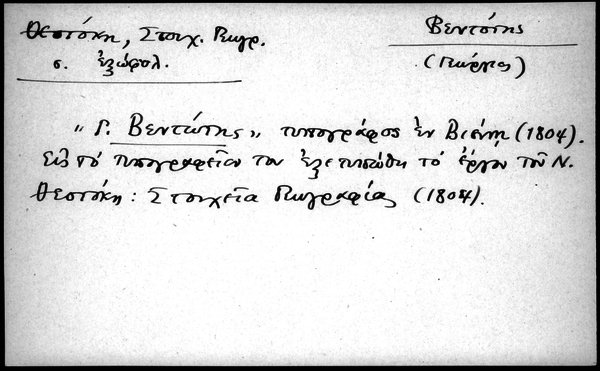 Θεοτόκη, Στοιχ. Γεωγρ.
σ. ἐξώφυλ.
Βεντότης
(Γεώργιος)
"Γ. Βεντώτης" τυπογράφος ἐν Βιέννῃ (1804).
Εἰς τό τυπογραφεῖον του ἐξετυπώθη τό ἔργον τοῦ Ν.
Θεοτόκη: Στοιχεῖα Γεωγραφίας (1804).